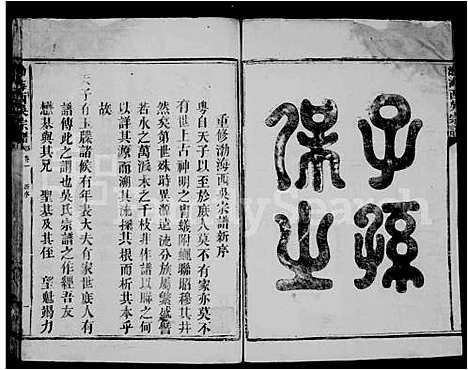 子孫
保之
重修渤海西吳宗譜新序
粵自天子以至於庶人莫不有家亦莫不
有世上古神明之胄蟻附蟬聯昭穆其井
然矣第世殊時異源遠流分族屬繁
若水之萬派木之千枝非作譜以聯之何
以詳其源而溯其流深其根而析其本乎
故
天子有玉牒諸候有年表大夫有家世庶人有
譜傳此之謂也吳氏宗譜之作經吾友
懋基與其兄 聖基及其侄 望魁竭力
FamilySearch